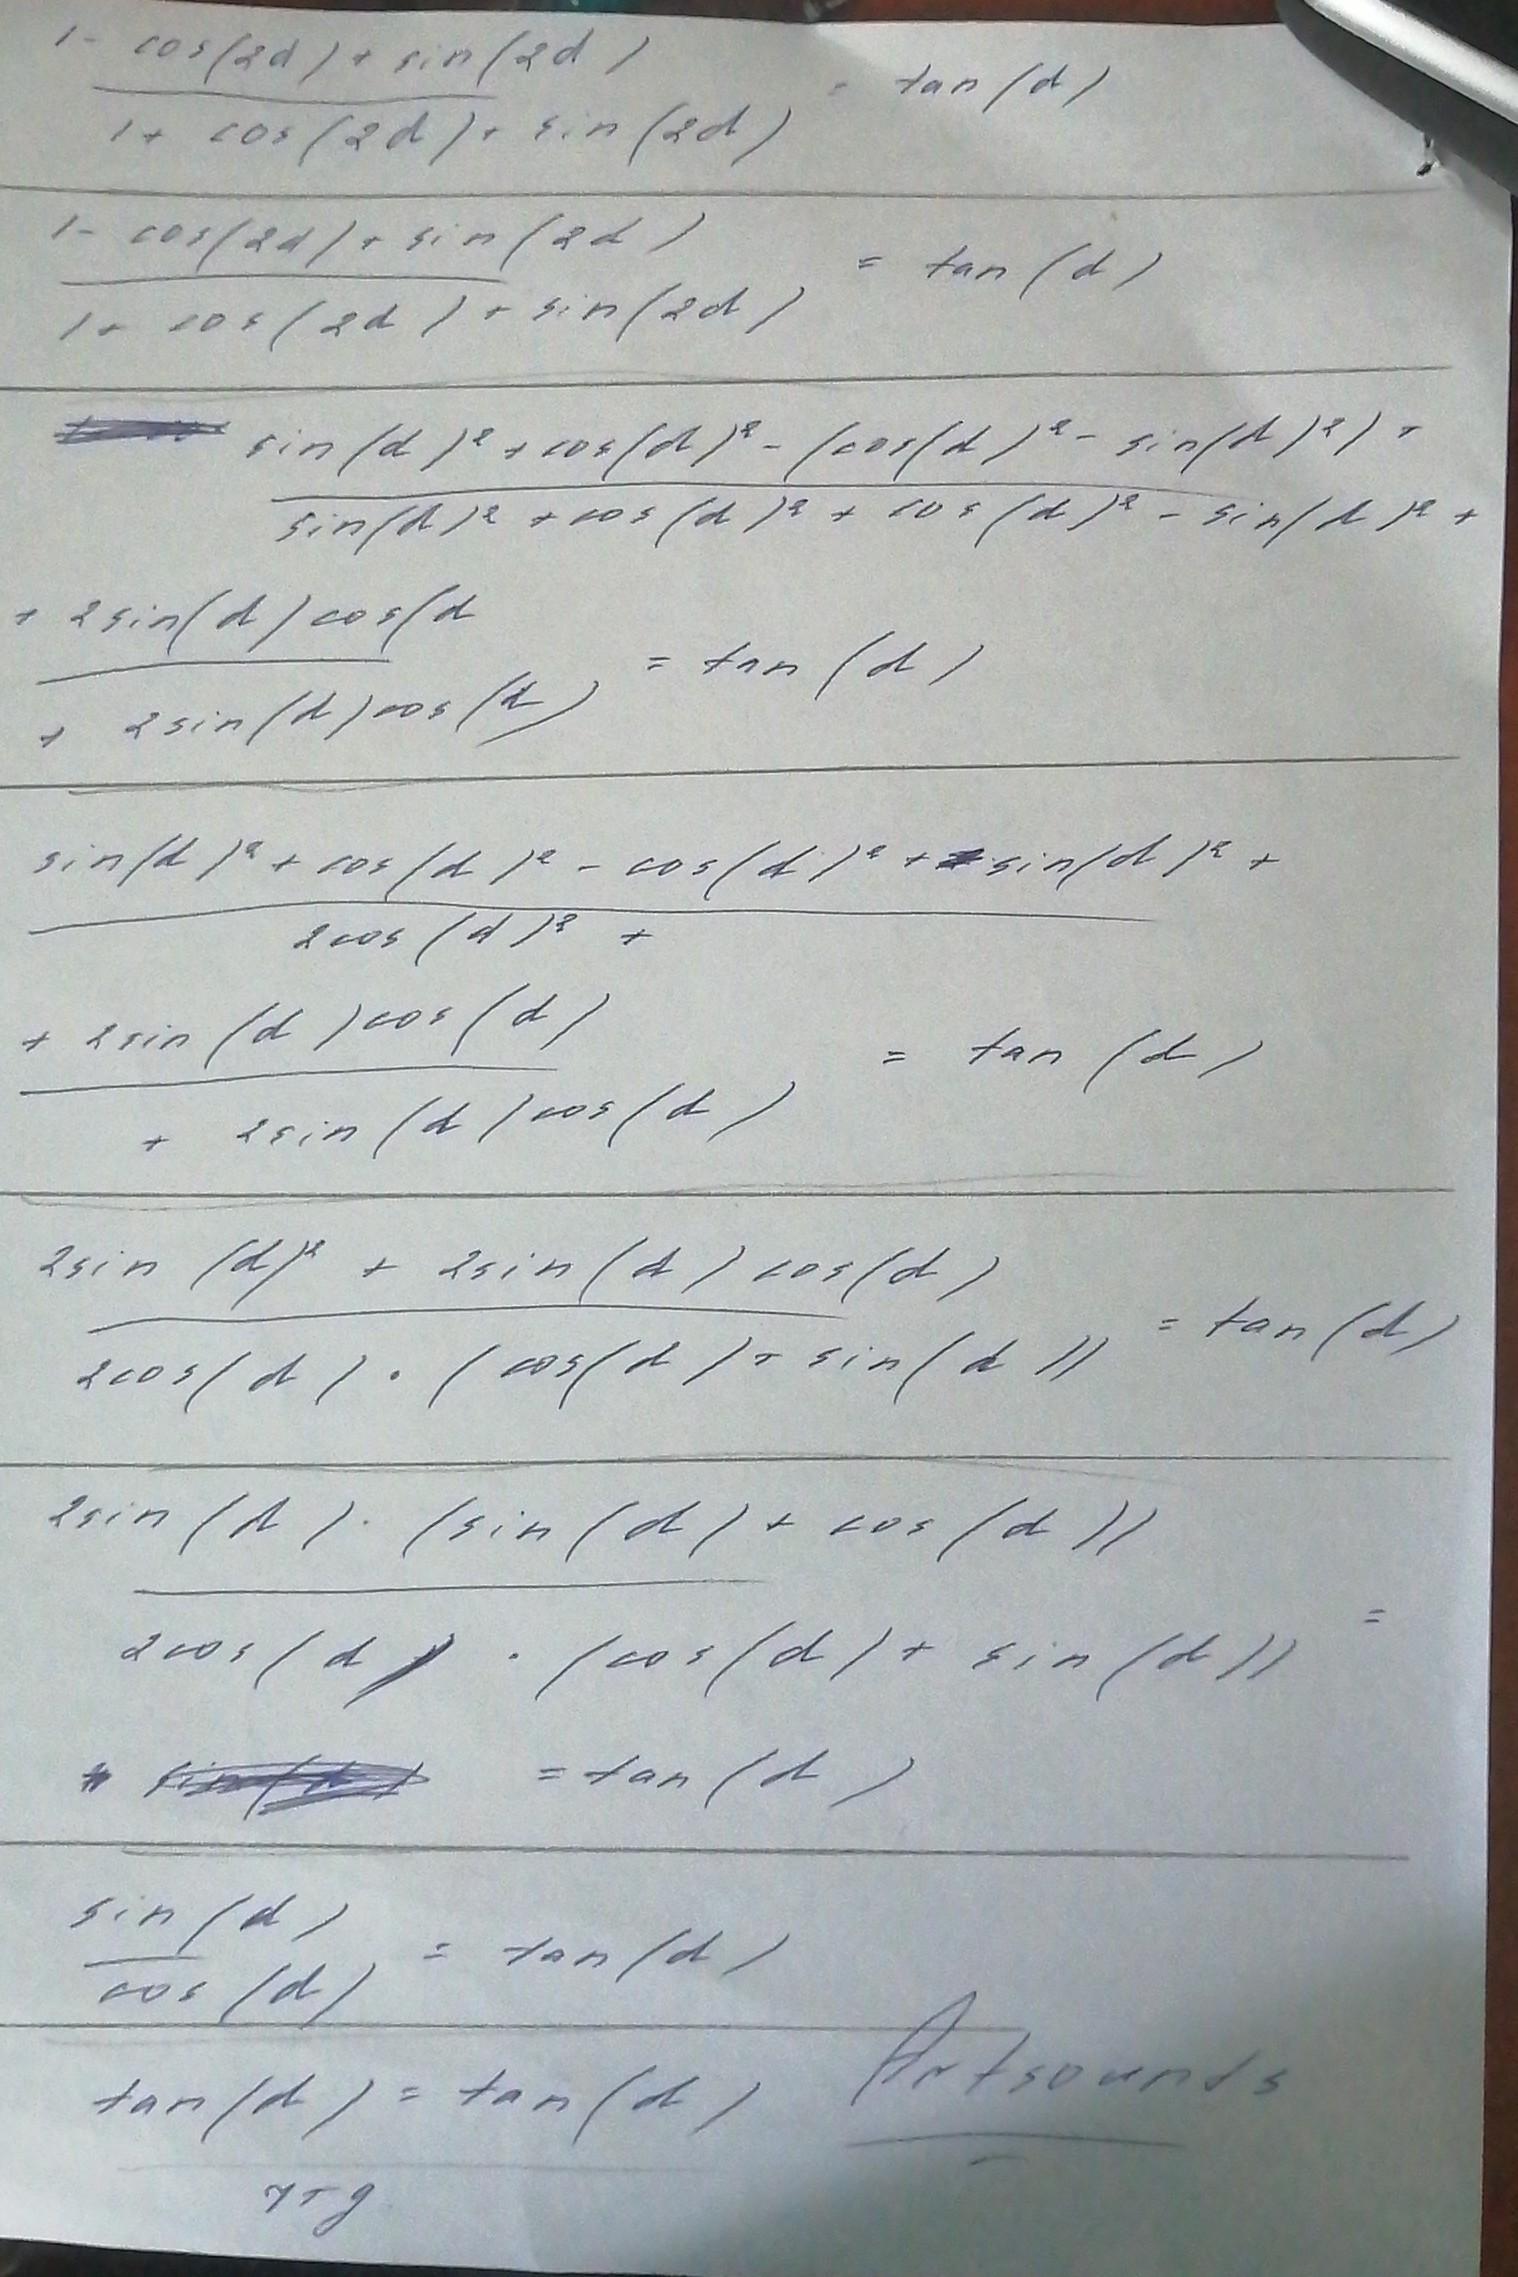 1 - cos(2d) + sin(2d)
= tan(d)
1 + cos(2d) + sin(2d)
1 - cos(2d) + sin(2d)
= tan(d)
1 + cos(2d) + sin(2d)
sin(d)² + cos(d)² - (cos(d)² - sin(d)²) +
sin(d)² + cos(d)² + cos(d)² - sin(d)² +
+ 2sin(d)cos(d
= tan(d)
+ 2sin(d)cos(d)
sin(d)² + cos(d)² - cos(d)² + sin(d)² +
2cos(d)² +
+ 2sin(d)cos(d)
= tan(d)
+ 2sin(d)cos(d)
2sin(d)² + 2sin(d)cos(d)
= tan(d)
2cos(d) · (cos(d) + sin(d))
2sin(d) · (sin(d) + cos(d))
=
2cos(d) · (cos(d) + sin(d))
= tan(d)
sin(d)
= tan(d)
cos(d)
tan(d) = tan(d)
Artsounds